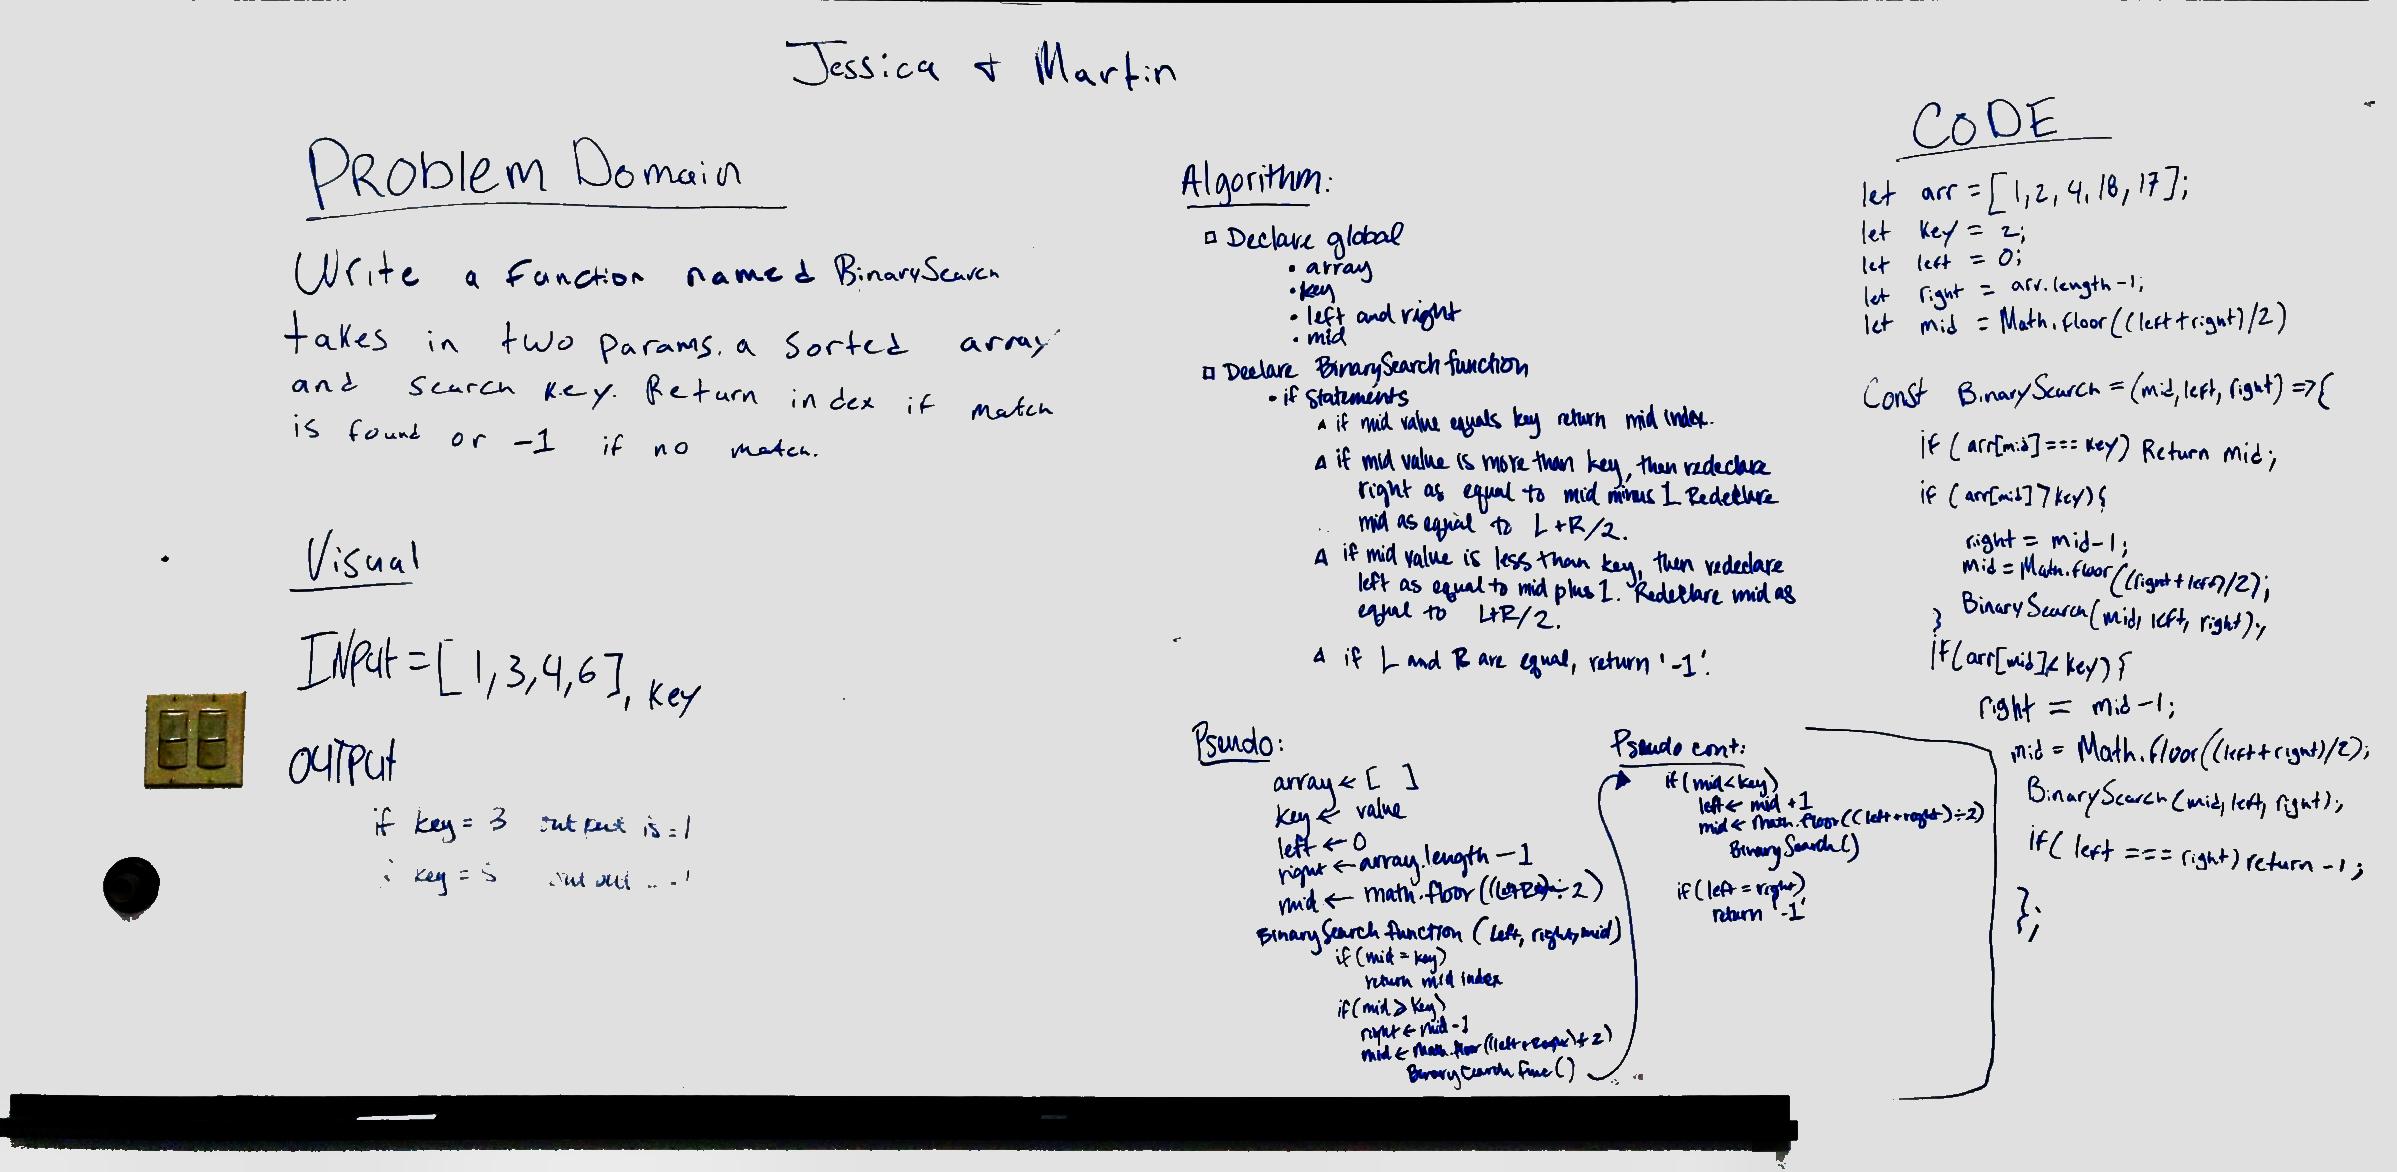 Jessica + Martin
PROBLEM Domain
Write a function named BinarySearch
takes in two params. a sorted array
and search key. Return index if match
is found or -1 if no match.
Visual
INPUT = [1,3,4,6], key
OUTPUT
if key = 3 output is = 1
key = 5
Algorithm:
Declare global
• array
• key
• left and right
• mid
Declare BinarySearch function
• if statements
if mid value equals key return mid index.
if mid value is more than key, then redeclare
right as equal to mid minus 1. Redeclare
mid as equal to L+R/2.
if mid value is less than key, then redeclare
left as equal to mid plus 1. Redeclare mid as
equal to L+R/2.
if L and R are equal, return '-1'.
Pseudo:
array ← [ ]
key ← value
left ← 0
right ← array.length - 1
mid ← math.floor((L+R) ÷ 2)
BinarySearch function (left, right, mid)
if (mid = key)
return mid index
if (mid > key)
right ← mid - 1
mid ← Math.floor((left + right) ÷ 2)
BinarySearch func()
Pseudo cont:
if (mid < key)
left ← mid + 1
mid ← Math.floor((left + right) ÷ 2)
BinarySearch()
if (left = right)
return '-1'
CODE
let arr = [1,2,4,18,17];
let key = 2;
let left = 0;
let right = arr.length-1;
let mid = Math.floor((left+right)/2)
Const BinarySearch = (mid, left, right) => {
if (arr[mid] === key) Return mid;
if (arr[mid] > key) {
right = mid-1;
mid = Math.floor((right+left)/2);
BinarySearch(mid, left, right);
}
if (arr[mid] < key) {
right = mid-1;
mid = Math.floor((left+right)/2);
BinarySearch(mid, left, right);
if( left === right) return -1;
};